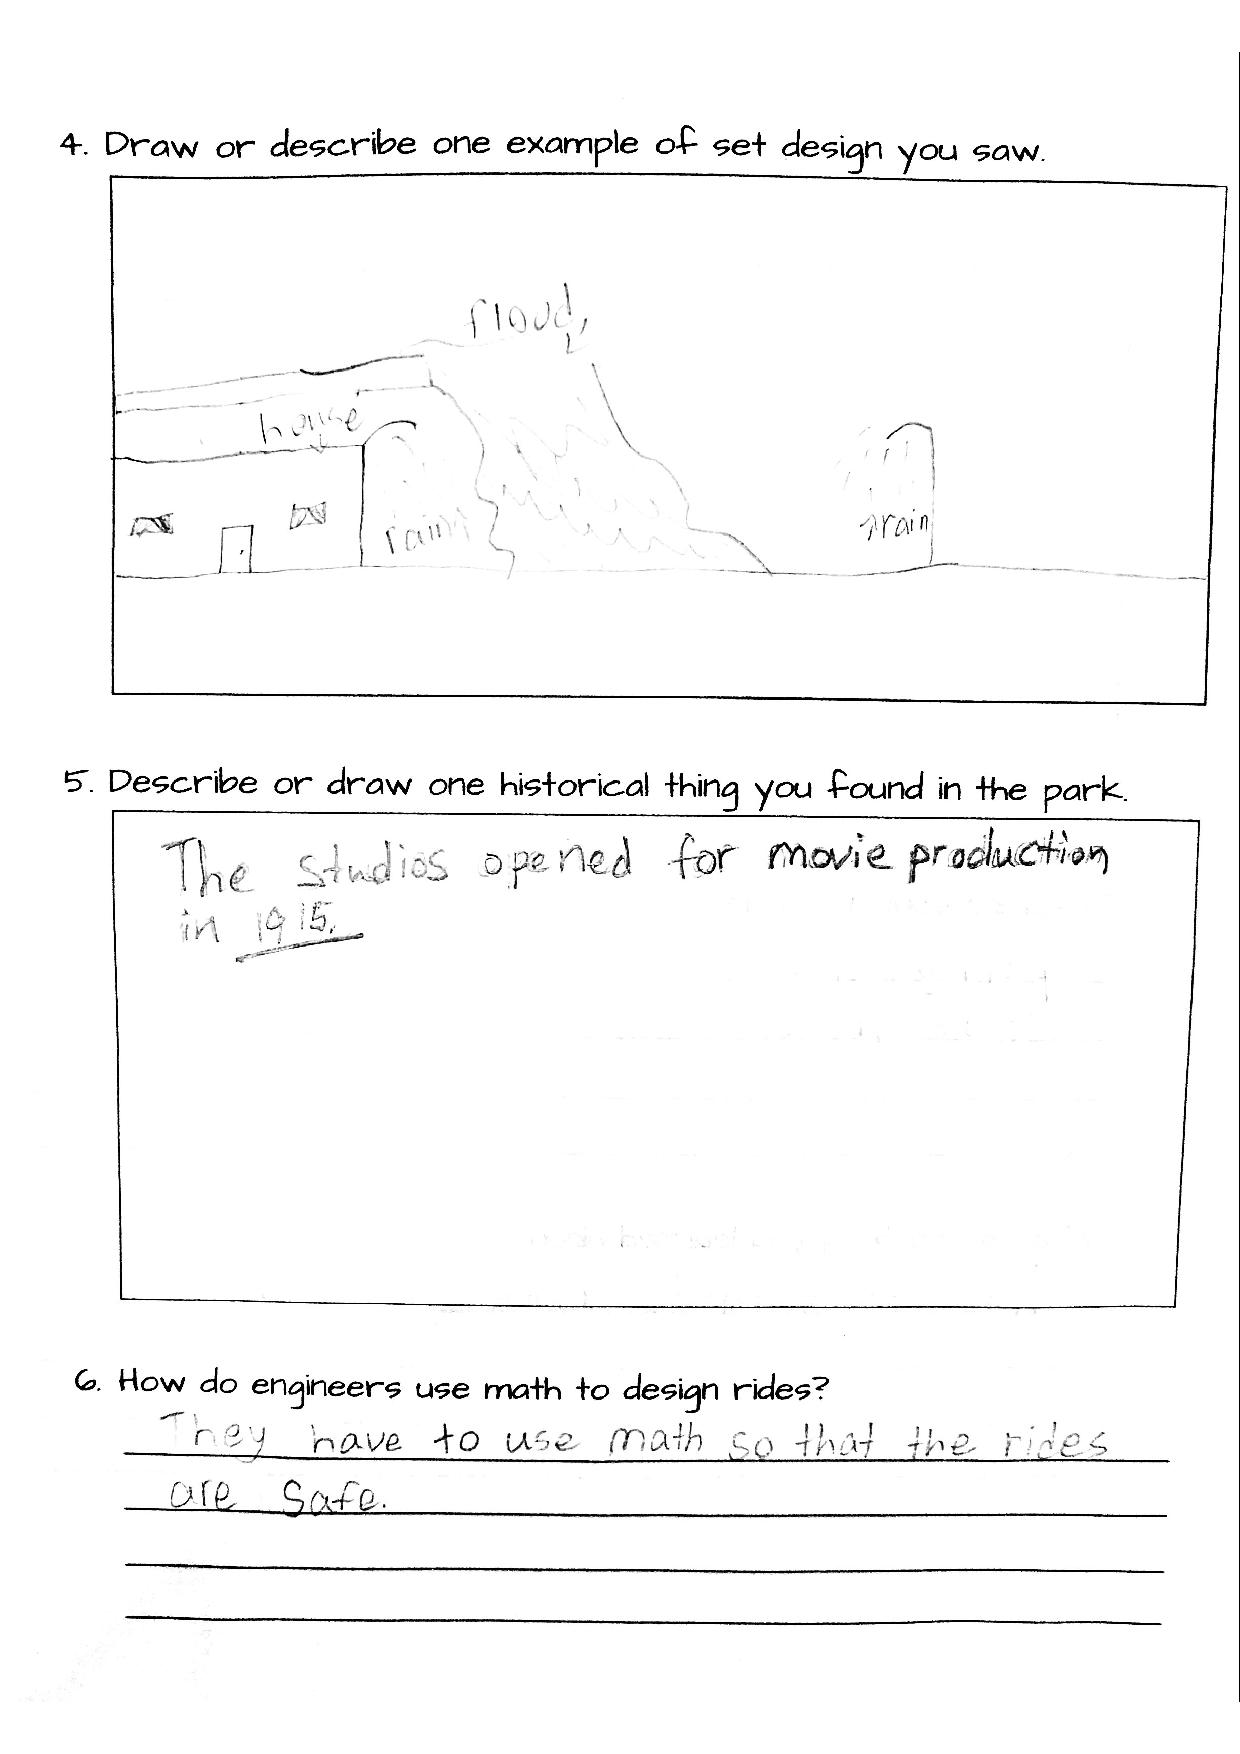 4. Draw or describe one example of set design you saw.
floud
house
rain
rain
5. Describe or draw one historical thing you found in the park.
The studios opened for movie production
in 1915.
6. How do engineers use math to design rides?
They have to use math so that the rides
are safe.